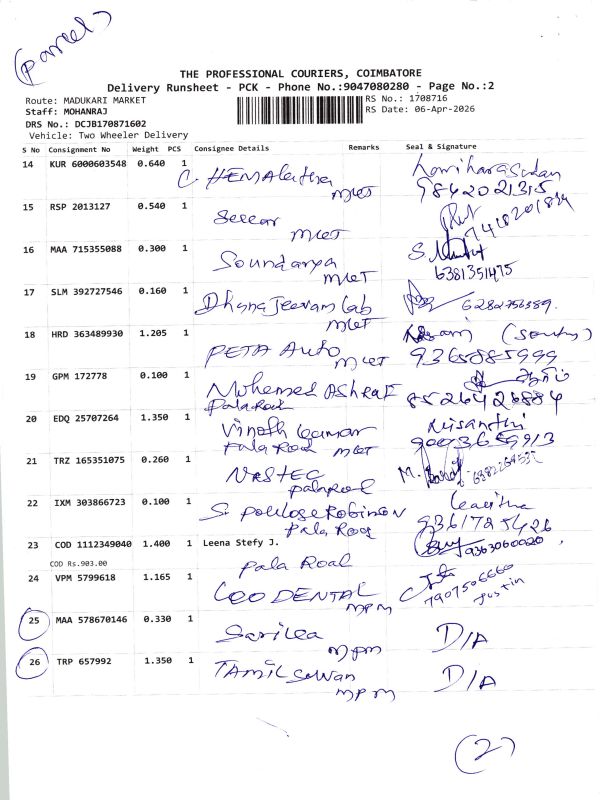 (parcel)
THE PROFESSIONAL COURIERS, COIMBATORE
Delivery Runsheet - PCK - Phone No.:9047080280 - Page No.:2
Route: MADUKARI MARKET RS No.: 1708716
Staff: MOHANRAJ RS Date: 06-Apr-2026
DRS No.: DCJB170871602
Vehicle: Two Wheeler Delivery
S No Consignment No Weight PCS Consignee Details Remarks Seal & Signature
14 KUR 6000603548 0.640 1 C. HEMA
MKET 9842021315
15 RSP 2013127 0.540 1
MKET 7418201834
16 MAA 715355088 0.300 1 Soundarya S.
MKET 6381351475
17 SLM 392727546 0.160 1 Dhanajeevam Lab 6282756389.
MKET
18 HRD 363489930 1.205 1 PETA Auto
MKET 9365885999
19 GPM 172778 0.100 1 Mohemed AShRAF
Pala Road 8526426884
20 EDQ 25707264 1.350 1 Vinoth kumar Nisanthi
Pala Road MKET 9003659913
21 TRZ 165351075 0.260 1 NASTEC M.
Pala Road
22 IXM 303866723 0.100 1 S. poulose Robinson
Pala Road 9361725426
23 COD 1112349040 1.400 1 Leena Stefy J. 9363060020,
COD Rs.903.00 Pala Road
24 VPM 5799618 1.165 1 LEO DENTAL 7907506660
MPM Justin
25 MAA 578670146 0.330 1 D/A
MPM
26 TRP 657992 1.350 1 TAMILSelvan D/A
MPM
(2)